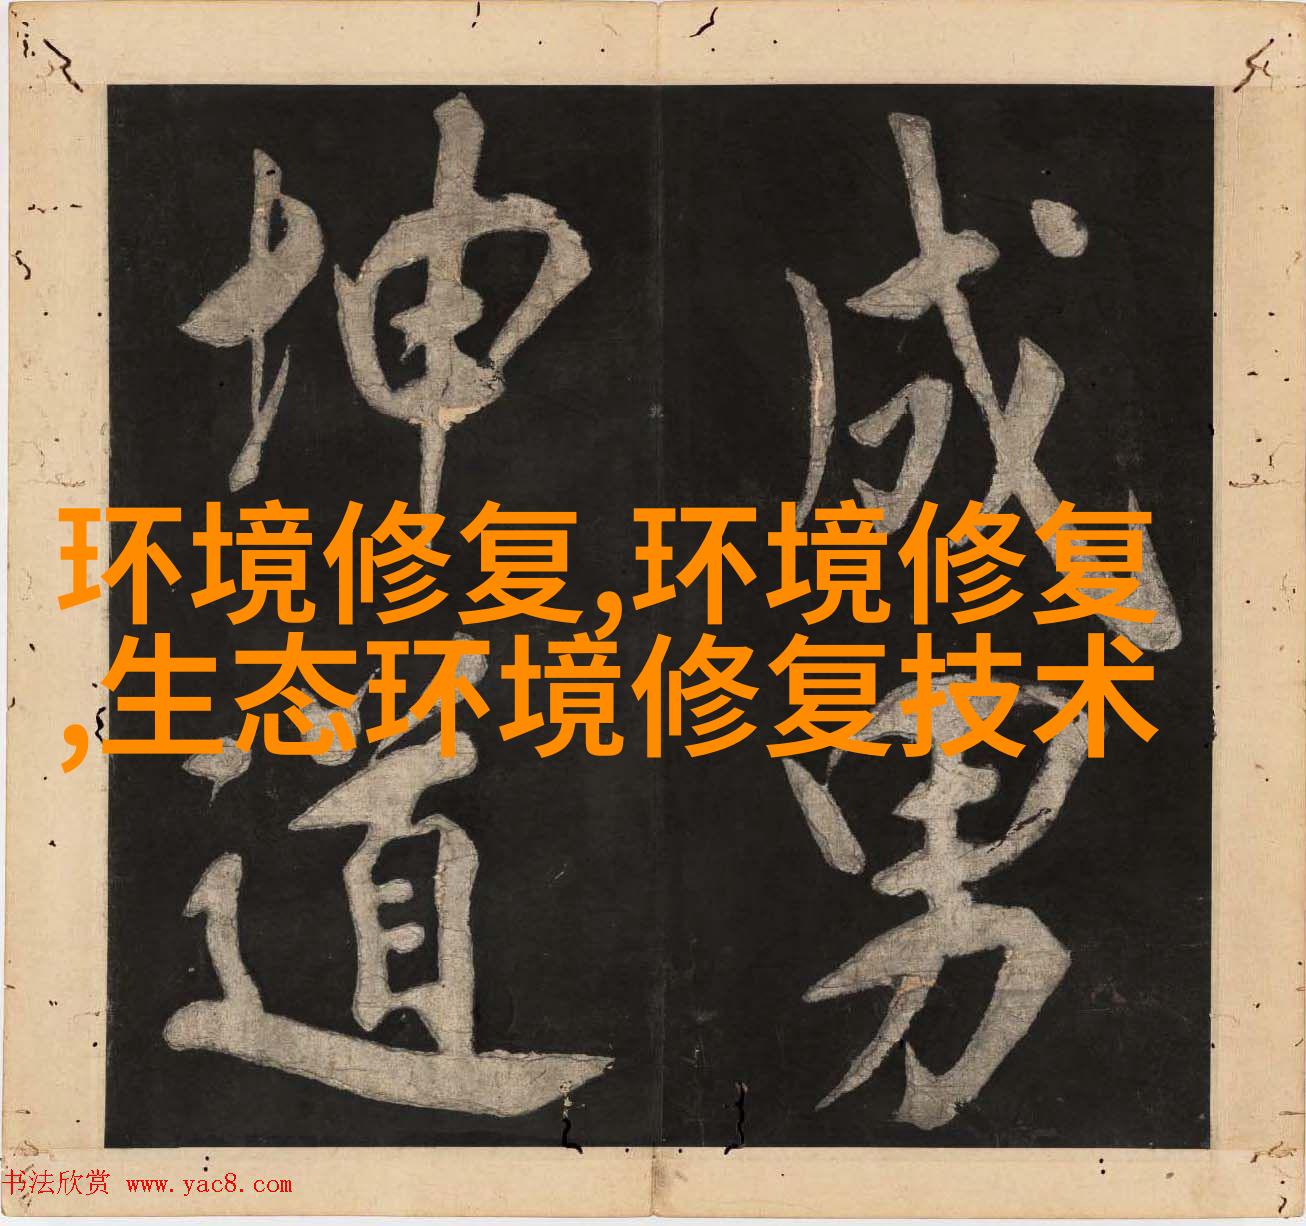 成男
坤道
环境修复,环境修复
,生态环境修复技术
书法欣赏 www.yac8.com